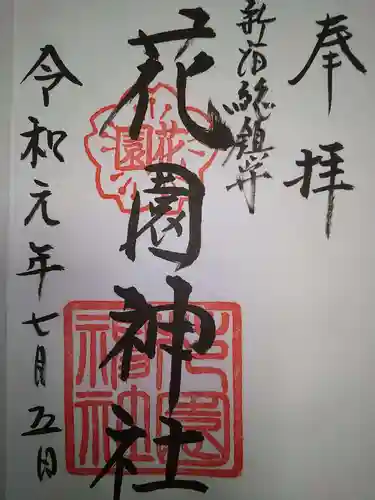 奉拝
新宿総鎮守
花園神社
花園
花園神社
令和元年七月五日